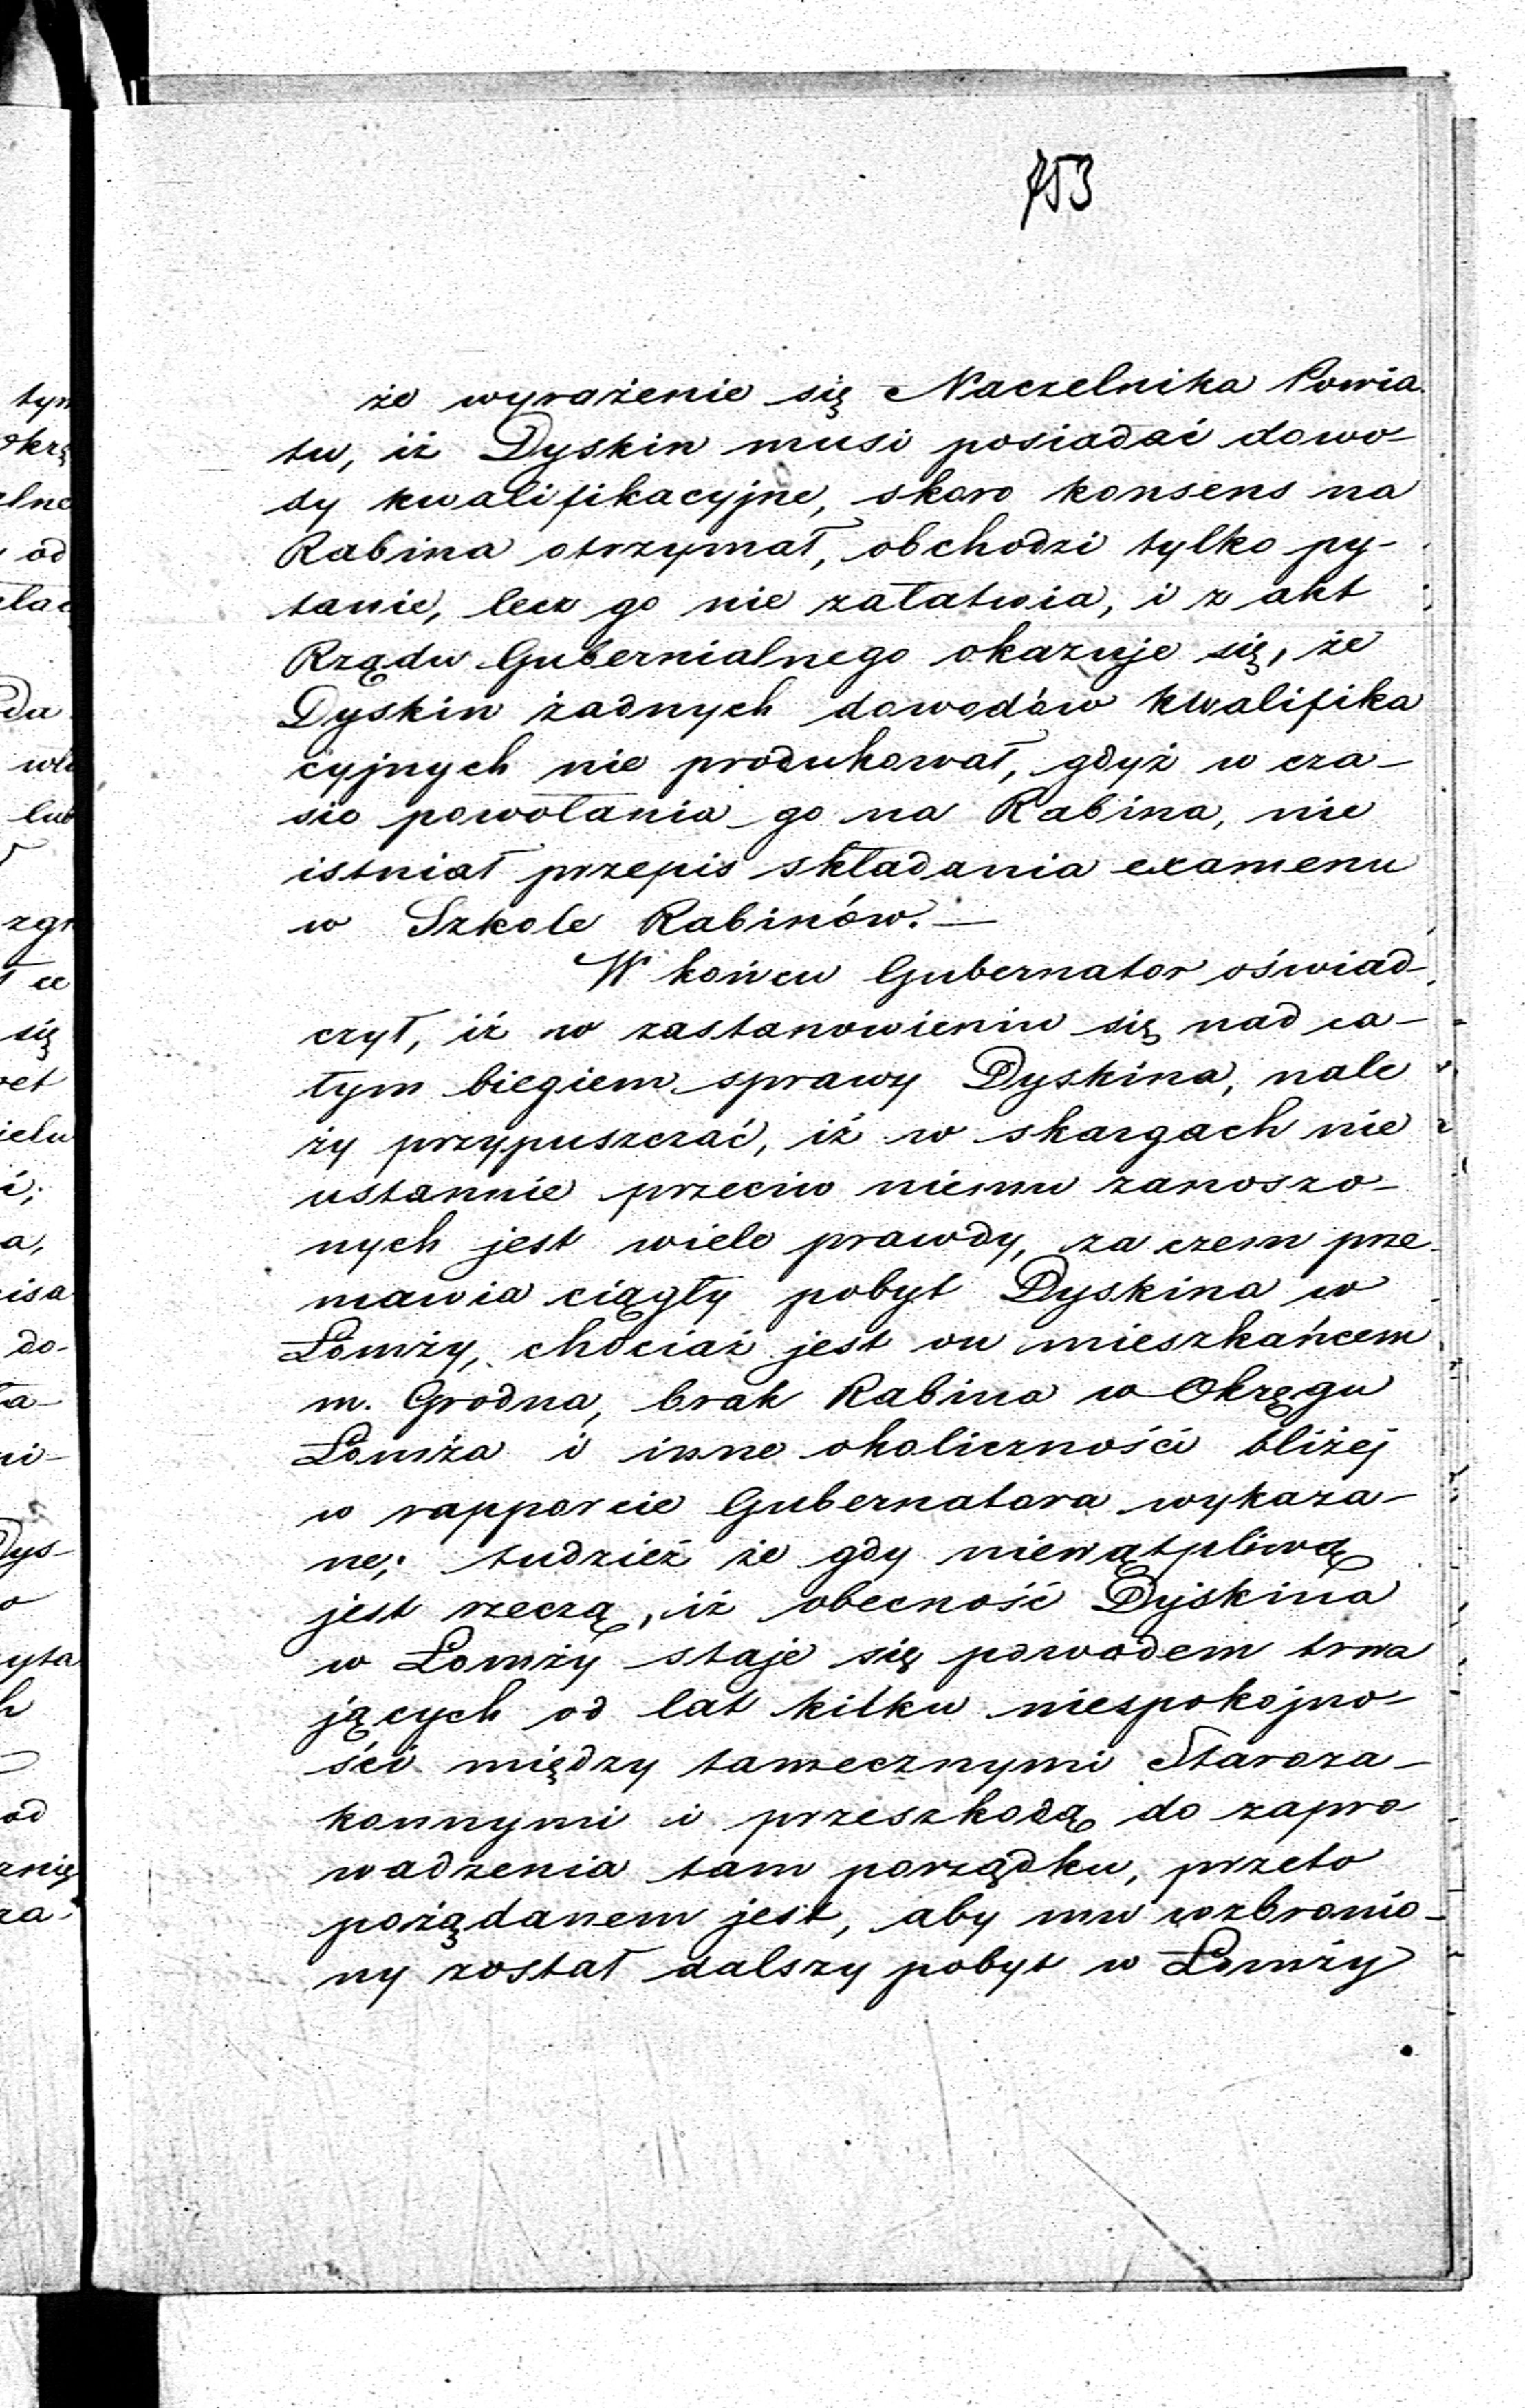 753
że wyrażenie się Naczelnika Powia
tu, iż Dyskin musi posiadać dowo-
dy kwalifikacyjne, skoro konsens na
Rabina otrzymał, obchodzi tylko py-
tanie, lecz go nie załatwia, i z akt
Rządu Gubernialnego okazuje się, że
Dyskin żadnych dowodów kwalifika
cyjnych nie produkował, gdyż w cza-
sie powołania go na Rabina, nie
istniał przepis składania examenu
w Szkole Rabinów. —
W końcu Gubernator oświad-
czył, iż w zastanowieniu się nad ca-
łym biegiem sprawy Dyskina, nale
ży przypuszczać, iż w skargach nie
ustannie przeciw niemu zanoszo-
nych jest wiele prawdy, za czem prze-
mawia ciągły pobyt Dyskina w
Łomży, chociaż jest on mieszkańcem
m. Grodna, brak Rabina w Okręgu
Łomża i inne okoliczności bliżej
w rapporcie Gubernatora wykaza-
ne; tudzież że gdy niewątpliwą
jest rzeczą, iż obecność Dyskina
w Łomży staje się powodem trwa
jących od lat kilku niespokojno-
ści między tamecznymi Staroza-
konnymi i przeszkodą do zapro
wadzenia tam porządku, przeto
pożądanem jest, aby mu wzbronio-
ny został dalszy pobyt w Łomży